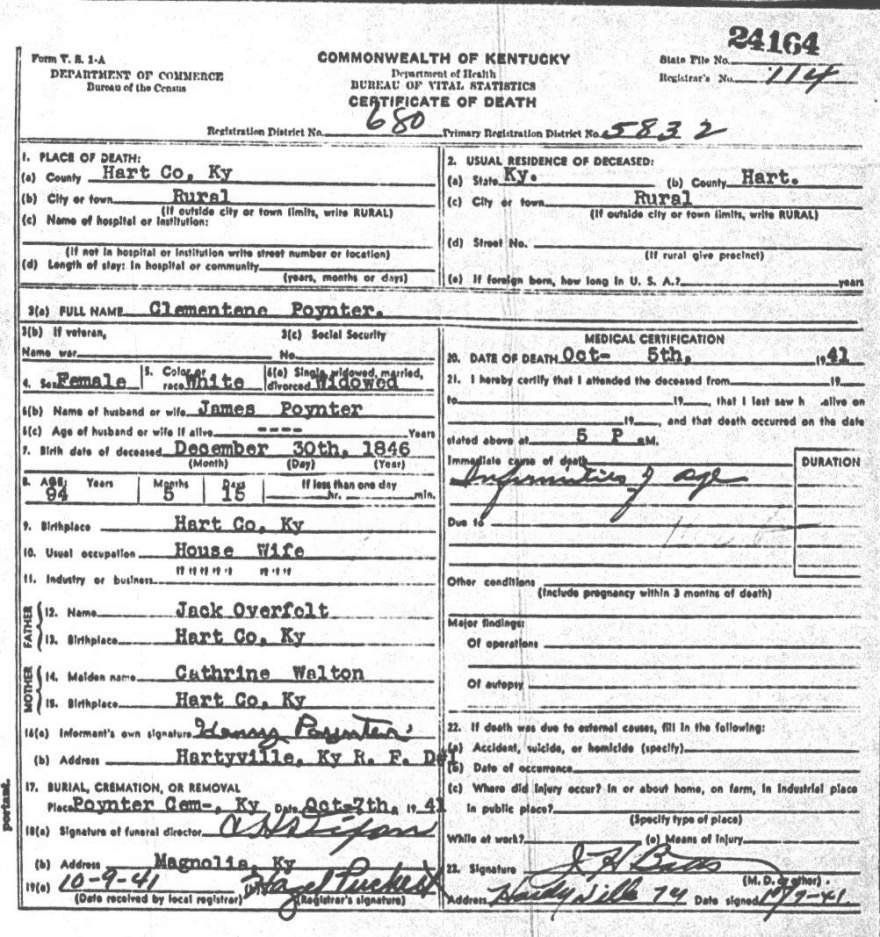 24164
Form V. S. 1-A
DEPARTMENT OF COMMERCE
Bureau of the Census
COMMONWEALTH OF KENTUCKY
Department of Health
BUREAU OF VITAL STATISTICS
CERTIFICATE OF DEATH
State File No.
Registrar's No. 114
Registration District No. 680 Primary Registration District No. 5832
1. PLACE OF DEATH:
(a) County Hart Co, Ky
(b) City or town Rural
(If outside city or town limits, write RURAL)
(c) Name of hospital or institution:
(If not in hospital or institution write street number or location)
(d) Length of stay: In hospital or community
(years, months or days)
2. USUAL RESIDENCE OF DECEASED:
(a) State Ky. (b) County Hart.
(c) City or town Rural
(If outside city or town limits, write RURAL)
(d) Street No.
(If rural give precinct)
(e) If foreign born, how long in U. S. A.? years
3(a) FULL NAME Clementene Poynter.
3(b) If veteran,
Name war
3(c) Social Security
No.
4. Sex Female 5. Color or race White 6(a) Single, widowed, married, divorced Widowed
6(b) Name of husband or wife James Poynter
6(c) Age of husband or wife if alive ---- Years
7. Birth date of deceased December 30th, 1846
(Month) (Day) (Year)
8. AGE: Years Months Days If less than one day
94 5 15 hr. min.
9. Birthplace Hart Co, Ky
10. Usual occupation House Wife
11. Industry or business """"" """
FATHER
12. Name Jack Overfelt
13. Birthplace Hart Co, Ky
MOTHER
14. Maiden name Cathrine Walton
15. Birthplace Hart Co, Ky
16(a) Informant's own signature Henry Poynter
(b) Address Hartyville, Ky R. F. D#1
17. BURIAL, CREMATION, OR REMOVAL
Place Poynter Cem-, Ky Date Oct-7th, 19 41
18(a) Signature of funeral director
(b) Address Magnolia, Ky
19(a) 10-9-41 Hazel Puckett
(Date received by local registrar) (Registrar's signature)
MEDICAL CERTIFICATION
20. DATE OF DEATH Oct- 5th, 1941
21. I hereby certify that I attended the deceased from 19
to 19, that I last saw h alive on
19, and that death occurred on the date
stated above at 5 P M.
Immediate cause of death
DURATION
Infirmities of age
Due to
Other conditions
(Include pregnancy within 3 months of death)
Major findings:
Of operations
Of autopsy
22. If death was due to external causes, fill in the following:
(a) Accident, suicide, or homicide (specify)
(b) Date of occurrence
(c) Where did injury occur? In or about home, on farm, in industrial place
in public place?
(Specify type of place)
While at work? (e) Means of injury
23. Signature J H Batts
(M. D. or other)
Address Hardyville Ky Date signed 10/9-41.
portant.